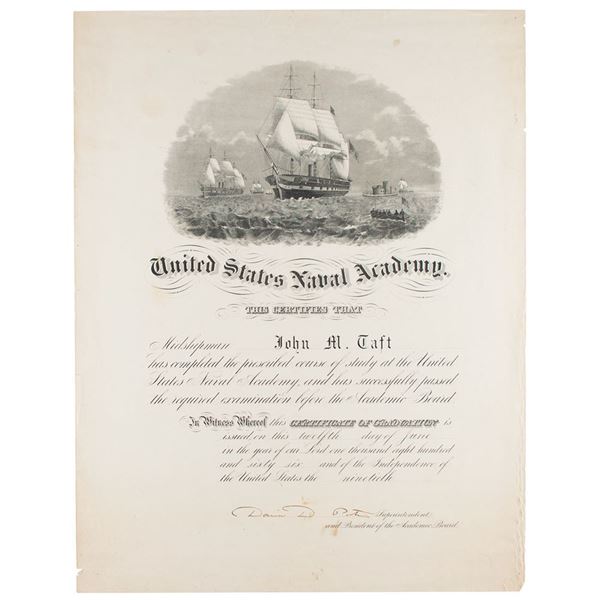 United States Naval Academy.
THIS CERTIFIES THAT
Midshipman John M. Taft
has completed the prescribed course of study at the United
States Naval Academy, and has successfully passed
the required examination before the Academic Board
In Witness Whereof this CERTIFICATE OF GRADUATION is
issued on this twelfth day of June
in the year of our Lord one thousand eight hundred
and sixty six and of the Independence of
the United States the ninetieth
David D. Porter Superintendent,
and President of the Academic Board